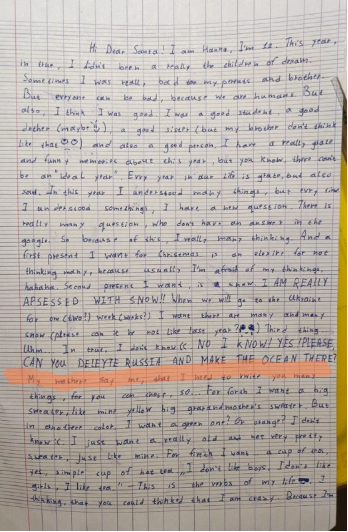 Hi Dear Santa! I am Hanna, I'm 12. This year,
in true, I didn't been a really the children of dream.
Sometimes I was really bad to my parents and brother.
But everyone can be bad, because we are humans. But
also, I think I was good. I was a good student, a good
dother (maybe), a good sister (but my brother don't think
like that) and also a good person. I have a really grate
and funny memories about this year, but you know, there can't
be an "ideal year". Evry year in our life is grate, but also
sad. In this year I understood many things, but evry time
I understood somethings, I have a new question. There is
really many question, who don't have an answer in the
google. So because of this, I really many thinking. And a
first present I want for Christmas is an elexire for not
thinking many, because usually I'm afraid of my thinkings,
hahaha. Second presens I want, is a snow. I AM REALLY
APSESSED WITH SNOW!! When we will go to the Ukraine
for one (two!) week (works?) I want there are many and many
snow (please can it be not like last year?) Third thing
Uhm... In true, I don't know (: NO I KNOW! YES! PLEASE,
CAN YOU DELEYTE RUSSIA AND MAKE THE OCEAN THERE?
My mothers say me, that I need to write you many
things, for you can chose, so... For forth I want a big
sweater, like mine yellow big grandmother's sweater. But
in another color. I want a green one! Or orange? I don't
know (: I just want a really old and not very pretty
sweater, just like mine. For fifth I want a cup of tea,
yes, simple cup of hot tea. „I don't like boys, I don't like
girls, I like tea" – This is the verbs of my life. I
thinking, that you could thinked that I am crazy. Because I'm